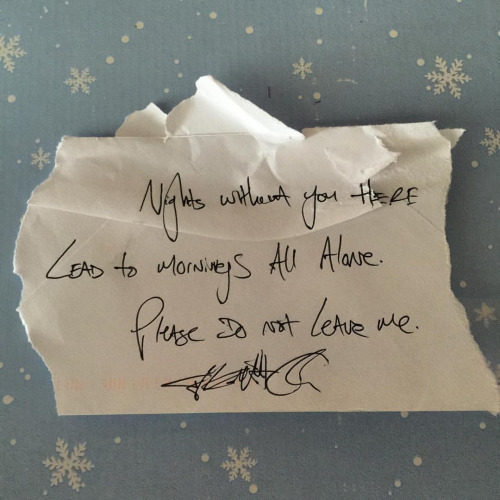 Nights without you HERE
LEAD to MORNINgS All Alone.
Please Do not Leave me.